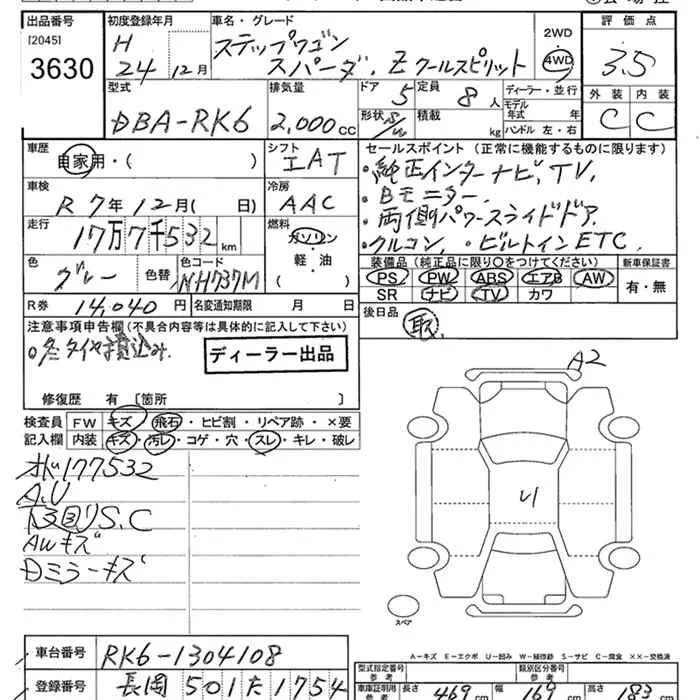 出品番号 初度登録年月 車名・グレード 2WD 評価点
[2045] H ステップワゴン 4WD 3.5
3630 24年 12月 スパーダ. Z クールスピリット
型式 排気量 ドア 5 定員 8人 ディーラー・並行 外装 内装
DBA-RK6 2,000cc 形状 S/W 積載 kg モデル年式 年式 C C
ハンドル 左・右
車歴 自家用・( ) シフト IAT セールスポイント (正常に機能するものに限ります)
・純正インターナビ、TV.
車検 R 7年12月( 日) 冷房 AAC ・Bモニター.
走行 17万7千532km 燃料 ガソリン ・両側パワースライドドア.
軽・油 ・クルコン. ・ビルトインETC
色 グレー 色替 色コード NH737M 装備品 (純正品に限り○をつけてください) 新車保証書
PS PW ABS エアB AW 有・無
SR ナビ TV カワ
R券 14,040円 名変通知期限 月 日
後日品 取
注意事項申告欄 (不具合内容等は具体的に記入して下さい)
○冬タイヤ積込み. ディーラー出品
A2
修復歴 有 [箇所 ]
検査員 FW キズ 飛石・ヒビ割・リペア跡・×要
記入欄 内装 キズ・汚レ・コゲ・穴・スレ・キレ・破レ
オド177532
A.U
下回りS.C
AWキズ
Dミラーキズ
U
スペア
A-キズ E-エクボ U-凹み W-補修跡 S-サビ C-腐食 ××-交換済
車台番号 RK6-1304108
型式指定番号 参考 類別区分番号 参考
登録番号 長岡 501た1754
車庫証明用 参考 長さ 469cm 幅 169cm 高さ 183cm